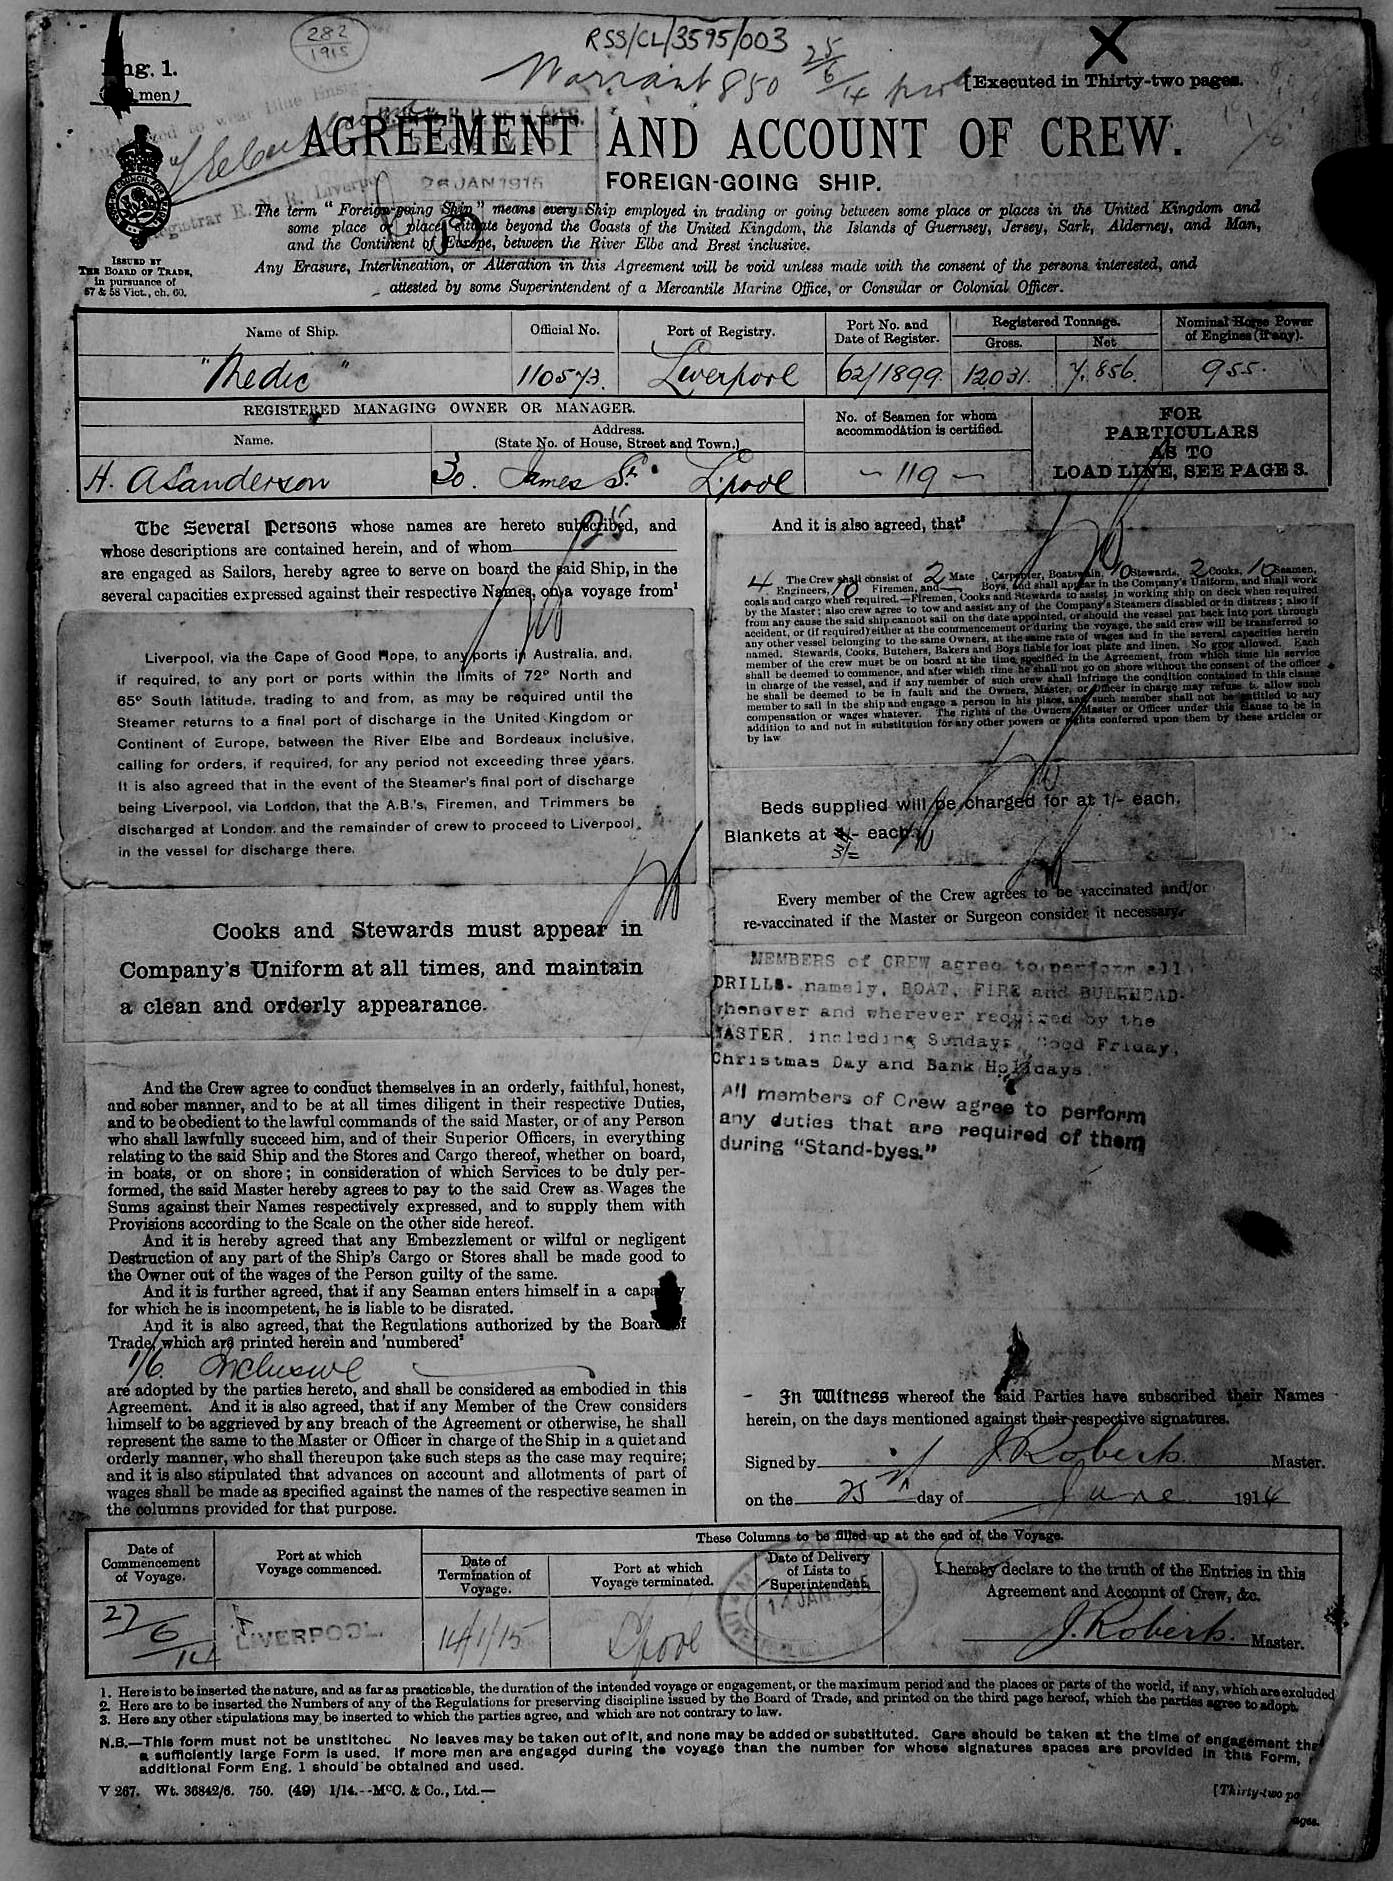 282
1915
RSS/CL/3595/003
Warrant 850 25/6/14
Eng. 1.
men)
[Executed in Thirty-two pages.
AGREEMENT AND ACCOUNT OF CREW.
26 JAN 1915
FOREIGN-GOING SHIP.
ISSUED BY
THE BOARD OF TRADE,
in pursuance of
57 & 58 Vict., ch. 60.
The term "Foreign-going Ship" means every Ship employed in trading or going between some place or places in the United Kingdom and
some place or places situate beyond the Coasts of the United Kingdom, the Islands of Guernsey, Jersey, Sark, Alderney, and Man,
and the Continent of Europe, between the River Elbe and Brest inclusive.
Any Erasure, Interlineation, or Alteration in this Agreement will be void unless made with the consent of the persons interested, and
attested by some Superintendent of a Mercantile Marine Office, or Consular or Colonial Officer.
Name of Ship. Official No. Port of Registry. Port No. and Date of Register. Registered Tonnage. Gross. Net Nominal Horse Power of Engines (if any).
"Medic" 110573. Liverpool 62/1899 12031. 7,856. 955.
REGISTERED MANAGING OWNER OR MANAGER.
Name. Address. (State No. of House, Street and Town.)
No. of Seamen for whom accommodation is certified.
FOR
PARTICULARS
AS TO
LOAD LINE, SEE PAGE 3.
H. A Sanderson 30. James St. L'pool - 119 -
The Several Persons whose names are hereto subscribed, and
whose descriptions are contained herein, and of whom 25
are engaged as Sailors, hereby agree to serve on board the said Ship, in the
several capacities expressed against their respective Names, on a voyage from¹
Liverpool, via the Cape of Good Hope, to any ports in Australia, and,
if required, to any port or ports within the limits of 72° North and
65° South latitude, trading to and from, as may be required until the
Steamer returns to a final port of discharge in the United Kingdom or
Continent of Europe, between the River Elbe and Bordeaux inclusive,
calling for orders, if required, for any period not exceeding three years.
It is also agreed that in the event of the Steamer's final port of discharge
being Liverpool, via London, that the A.B.'s, Firemen, and Trimmers be
discharged at London, and the remainder of crew to proceed to Liverpool,
in the vessel for discharge there.
Cooks and Stewards must appear in
Company's Uniform at all times, and maintain
a clean and orderly appearance.
And the Crew agree to conduct themselves in an orderly, faithful, honest,
and sober manner, and to be at all times diligent in their respective Duties,
and to be obedient to the lawful commands of the said Master, or of any Person
who shall lawfully succeed him, and of their Superior Officers, in everything
relating to the said Ship and the Stores and Cargo thereof, whether on board,
in boats, or on shore; in consideration of which Services to be duly per-
formed, the said Master hereby agrees to pay to the said Crew as Wages the
Sums against their Names respectively expressed, and to supply them with
Provisions according to the Scale on the other side hereof.
And it is hereby agreed that any Embezzlement or wilful or negligent
Destruction of any part of the Ship's Cargo or Stores shall be made good to
the Owner out of the wages of the Person guilty of the same.
And it is further agreed, that if any Seaman enters himself in a capacity
for which he is incompetent, he is liable to be disrated.
And it is also agreed, that the Regulations authorized by the Board of
Trade, which are printed herein and numbered²
1/6. Inclusive
are adopted by the parties hereto, and shall be considered as embodied in this
Agreement. And it is also agreed, that if any Member of the Crew considers
himself to be aggrieved by any breach of the Agreement or otherwise, he shall
represent the same to the Master or Officer in charge of the Ship in a quiet and
orderly manner, who shall thereupon take such steps as the case may require;
and it is also stipulated that advances on account and allotments of part of
wages shall be made as specified against the names of the respective seamen in
the columns provided for that purpose.
And it is also agreed, that³
The Crew shall consist of 2 Mate , Carpenter, Boatswain, 10 Stewards, 2 Cooks, 10 Seamen,
4 Engineers, 10 Firemen, and — Boys, and shall appear in the Company's Uniform, and shall work
coals and cargo when required.—Firemen, Cooks and Stewards to assist in working ship on deck when required
by the Master; also crew agree to tow and assist any of the Company's Steamers disabled or in distress; also if
from any cause the said ship cannot sail on the date appointed, or should the vessel put back into port through
accident, or (if required) either at the commencement or during the voyage, the said crew will be transferred to
any other vessel belonging to the same Owners, at the same rate of wages and in the several capacities herein
named. Stewards, Cooks, Butchers, Bakers and Boys liable for lost plate and linen. No grog allowed. Each
member of the crew must be on board at the time specified in the Agreement, from which time his service
shall be deemed to commence, and after which time he shall not go on shore without the consent of the officer
in charge of the vessel, and if any member of such crew shall infringe the condition contained in this clause
he shall be deemed to be in fault and the Owners, Master, or Officer in charge may refuse to allow such
member to sail in the ship and engage a person in his place, and such member shall not be entitled to any
compensation or wages whatever. The rights of the Owners, Master or Officer under this clause to be in
addition to and not in substitution for any other powers or rights conferred upon them by these articles or
by law
Beds supplied will be charged for at 1/- each.
Blankets at 3/= each.
Every member of the Crew agrees to be vaccinated and/or
re-vaccinated if the Master or Surgeon consider it necessary.
MEMBERS of CREW agree to perform all
DRILLS- namely, BOAT, FIRE and BULKHEAD-
whenever and wherever required by the
MASTER, including Sundays, Good Friday,
Christmas Day and Bank Holidays.
All members of Crew agree to perform
any duties that are required of them
during "Stand-byes."
In Witness whereof the said Parties have subscribed their Names
herein, on the days mentioned against their respective signatures.
Signed by J. Roberts Master.
on the 25th day of June 1914
Date of Commencement of Voyage. Port at which Voyage commenced. These Columns to be filled up at the end of the Voyage.
Date of Termination of Voyage. Port at which Voyage terminated. Date of Delivery of Lists to Superintendent.
I hereby declare to the truth of the Entries in this
Agreement and Account of Crew, &c.
27/6/14 LIVERPOOL. 14/1/15 L'pool 14 JAN 1915 J. Roberts. Master.
1. Here is to be inserted the nature, and as far as practicable, the duration of the intended voyage or engagement, or the maximum period and the places or parts of the world, if any, which are excluded
2. Here are to be inserted the Numbers of any of the Regulations for preserving discipline issued by the Board of Trade, and printed on the third page hereof, which the parties agree to adopt.
3. Here any other stipulations may be inserted to which the parties agree, and which are not contrary to law.
N.B.—This form must not be unstitched. No leaves may be taken out of it, and none may be added or substituted. Care should be taken at the time of engagement that
a sufficiently large Form is used. If more men are engaged during the voyage than the number for whose signatures spaces are provided in this Form,
additional Form Eng. 1 should be obtained and used.
V 267. Wt. 36842/6. 750. (49) 1/14.--McC. & Co., Ltd.—
[Thirty-two